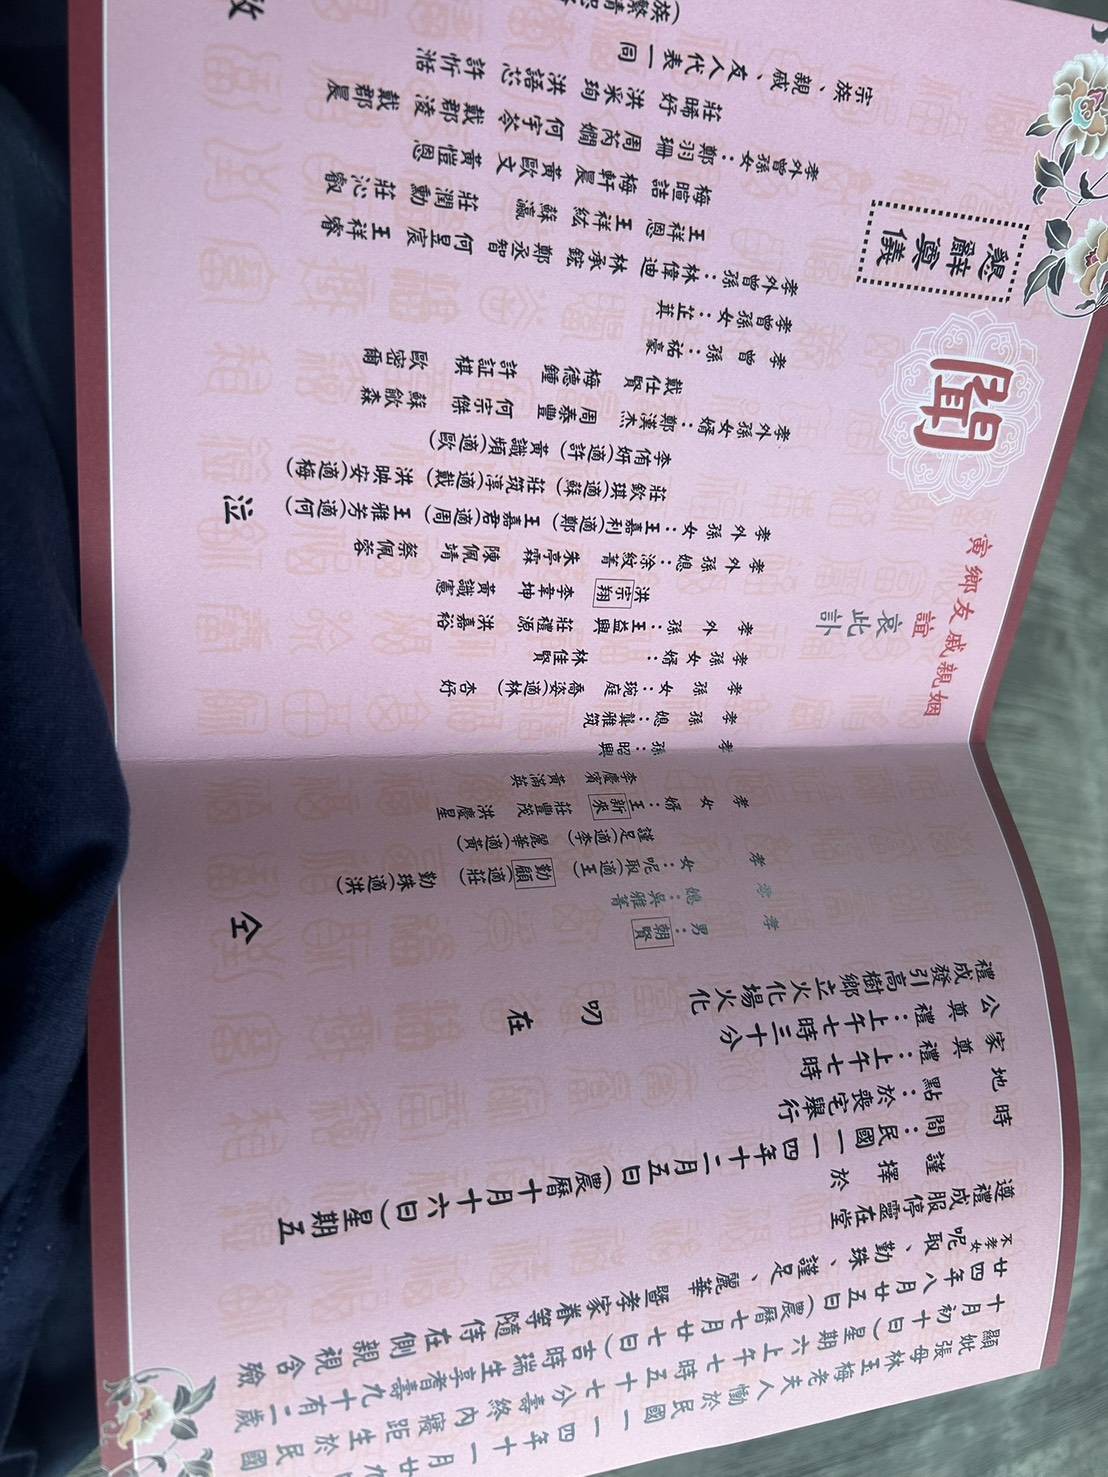 顯妣張母林玉梅老夫人慟於民國一一四年十一月廿九
十月初十日)星期六上午七時五十七分壽終內寢距生於民國
廿四年八月廿五日(農曆七月廿七日)吉時瑞生享耆壽九十有一歲
不孝女呢取、勤珠、謹足、麗華暨孝家眷等隨侍在側親視含殮
遵禮成服停靈在堂
謹擇於
時間：民國一一四年十二月五日(農曆十月十六日)星期五
地點：於喪宅舉行
家奠禮：上午七時
公奠禮：上午七時三十分
禮成發引高樹鄉立火化場火化
叨在
姻親戚友鄉寅
誼
哀此訃
聞
懇辭奠儀
孝男：朝賢
孝媳：吳雅菁
孝女：呢取(適王) 勤願(適莊) 勤珠(適洪)
謹足(適李) 麗華(適黃)
孝女婿：王新來 莊豐茂 洪慶星
李慶賓 黃滿英
孝孫：昭興
孝孫媳：龔雅筑
孝孫女：琬庭 喬姿(適林) 杏妤
孝孫女婿：林佳賢
孝外孫：王益興 莊禮源 洪嘉裕
洪宗翔 李韋坤 黃識憲
孝外孫媳：涂紋菁 朱亭霖 陳佩靖 蔡佩蓉
孝外孫女：王嘉利(適鄭) 王嘉君(適周) 王雅芳(適何)
莊欽琪(適蘇) 莊筑淳(適戴) 洪映安(適梅)
李侑妍(適許) 黃識頻(適歐)
孝外孫女婿：鄭漢杰 周泰豐 何宗傑 蘇歆森
戴仕賢 梅德鍾 許証棋 歐密爾
孝曾孫：祐豪
孝曾孫女：芷萁
孝外曾孫：林偉迪 林承鋐 鄭丞智 何昱宸 王祥睿
王祥恩 王祥紘 蘇瀛 莊潤勳 莊沁叡
梅暄詰 梅軒晨 黃歐文 黃愷恩
孝外曾孫女：鄭羽珊 周芮嫺 何宇芩 戴郡淩 戴郡晨
莊晞妤 洪采珣 洪語芯 許忻湉
宗族、親戚、友人代表一同
仝
泣